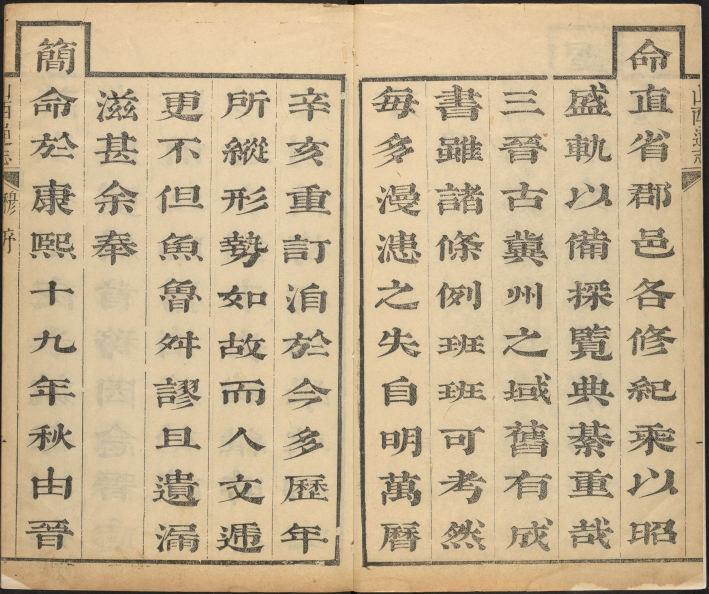 命直省郡邑各修紀乘以昭
盛軌以備採覽典綦重哉
三晉古冀州之域舊有成
書雖諸條例班班可考然
每多漫漶之失自明萬曆
辛亥重訂洎於今多歷年
所縱形勢如故而人文遞
更不但魚魯舛謬且遺漏
滋甚余奉
簡命於康熙十九年秋由晉
山西通志
山西通志 穆序